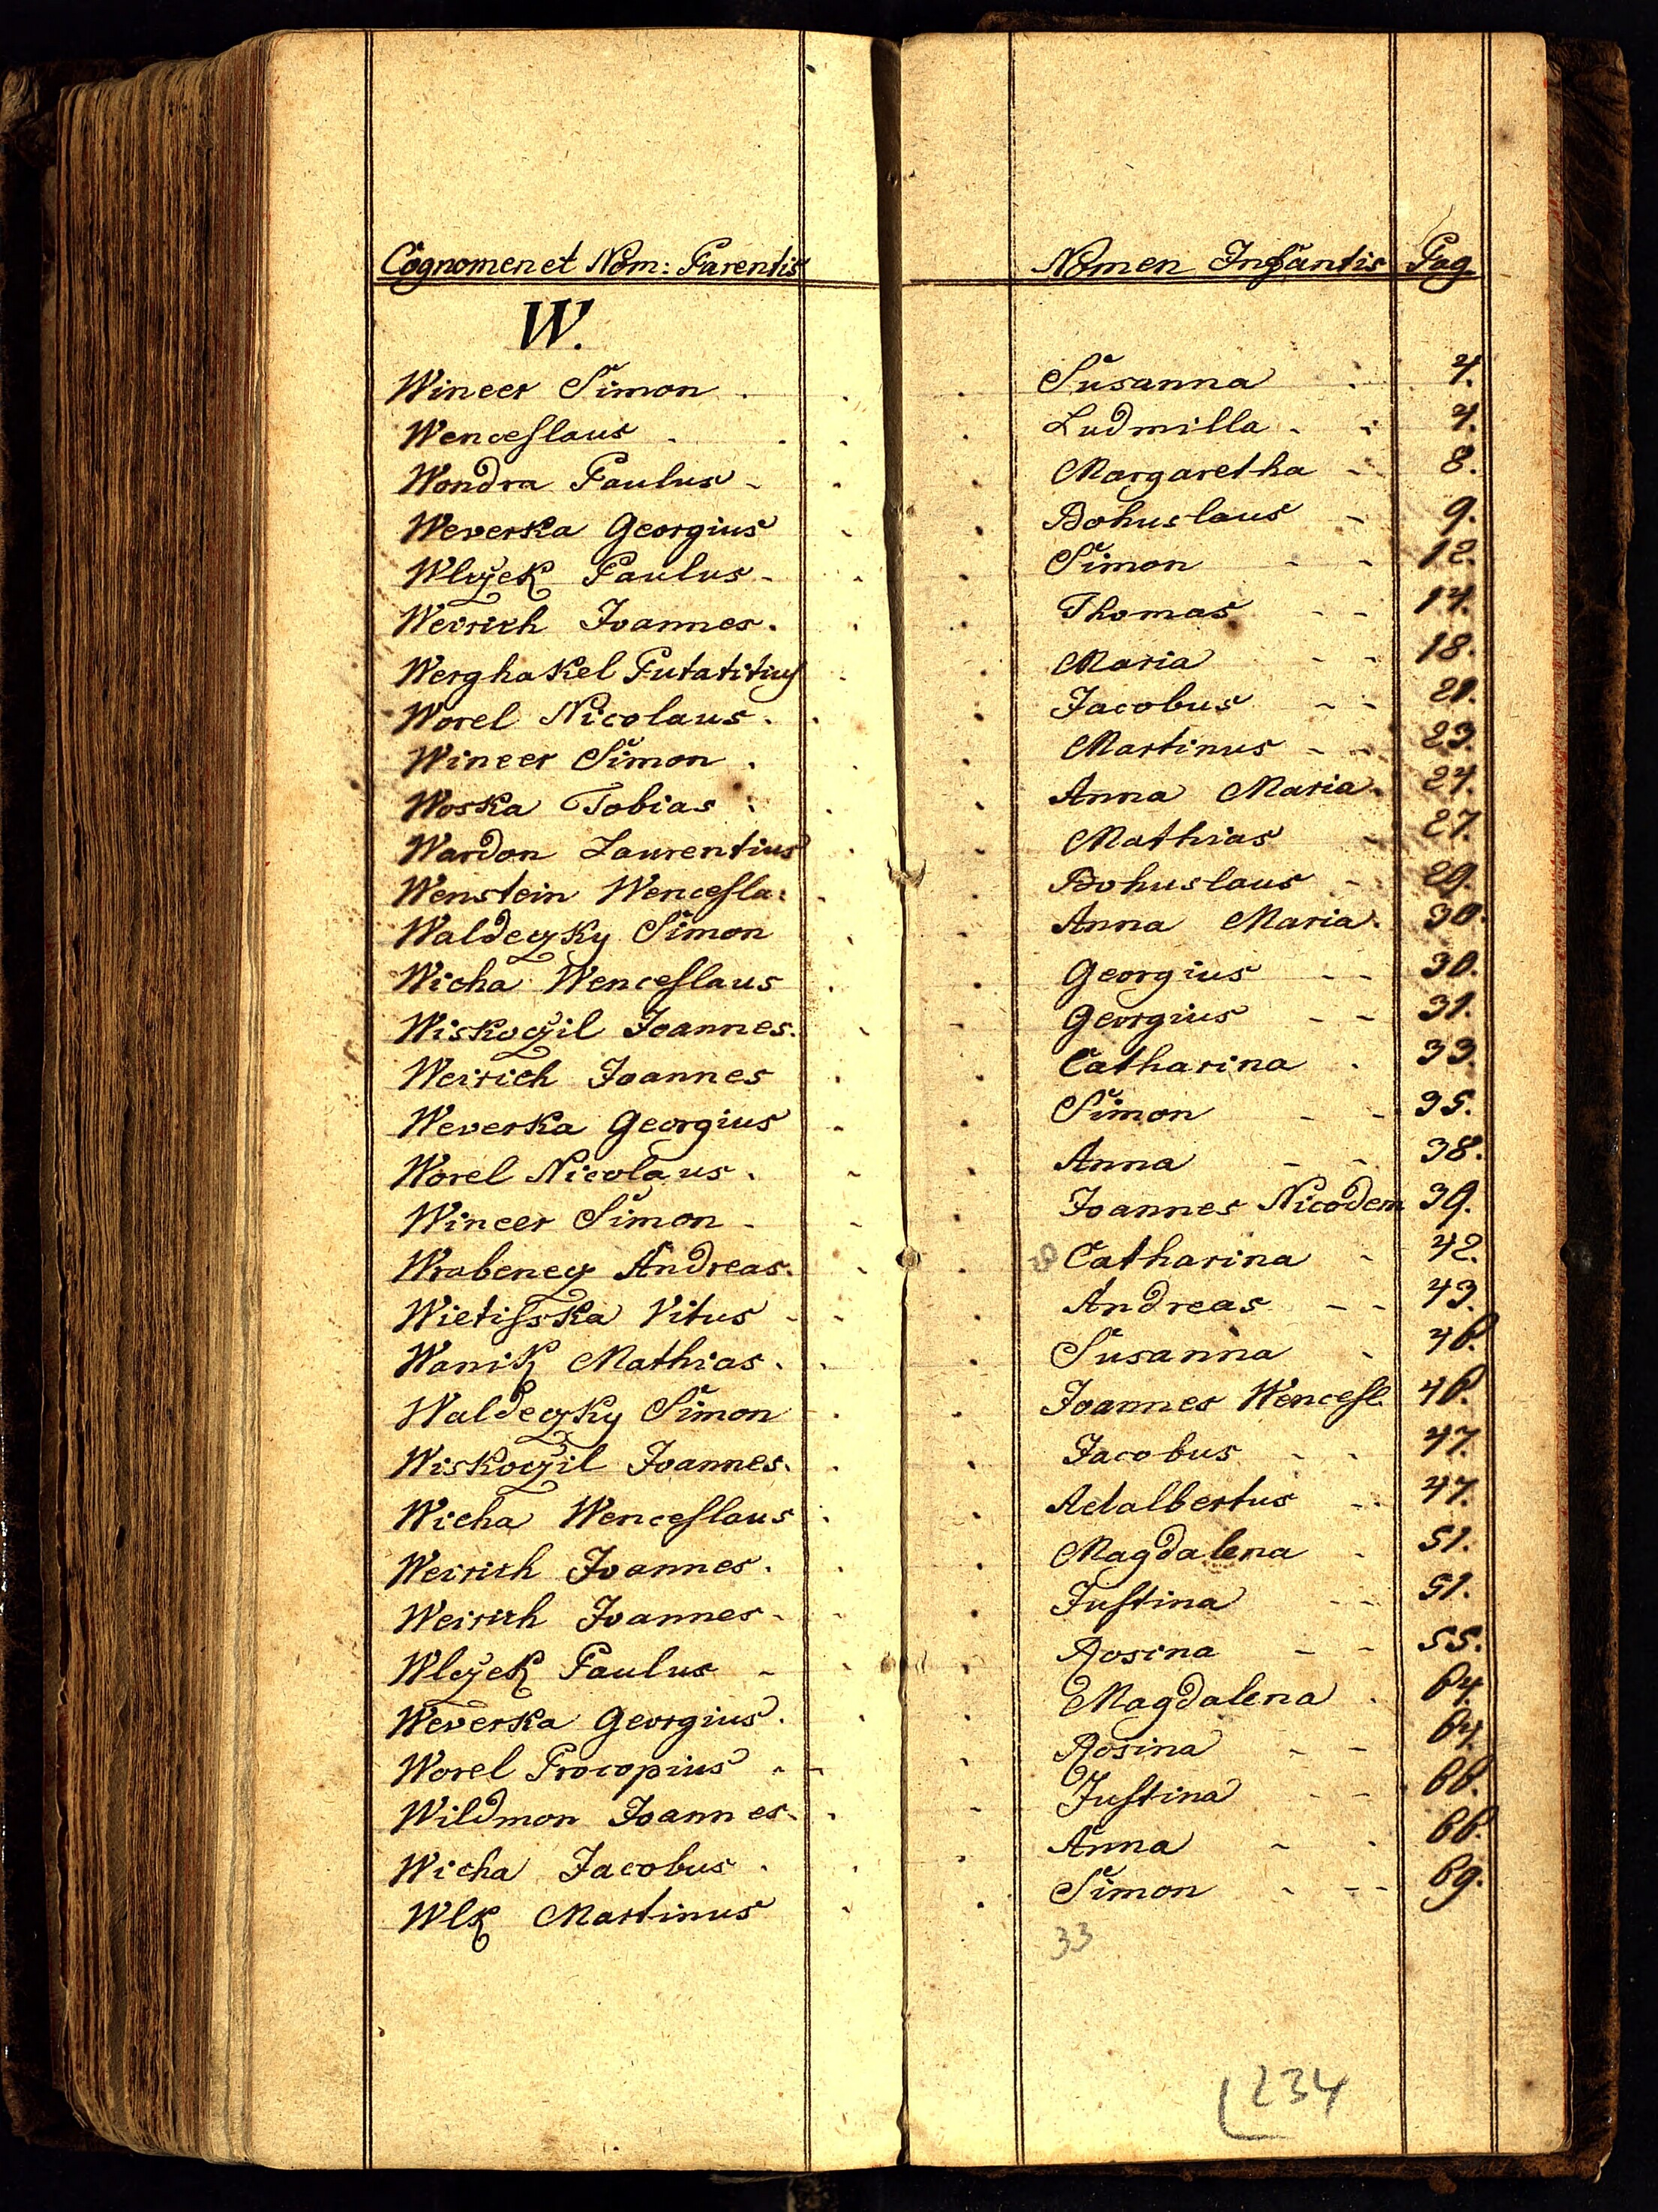 Cognomen et Nom: Parentis Nomen Infantis Pag
W.
Wineer Simon . Susanna 4.
Wenceslaus . Ludmilla 4.
Wondra Paulus Margaretha 8.
Weverka Georgius Bohuslaus 9.
Wlczek Paulus Simon 12.
Weirich Joannes. Thomas 14.
Werghakel Putatitius Maria 18.
Worel Nicolaus. Jacobus 21.
Wineer Simon . Martinus 23.
Woska Tobias Anna Maria. 24.
Wardon Laurentius Mathias 27.
Wenstein Wencesla: Bohuslaus 29.
Waldeczky Simon Anna Maria. 30.
Wicha Wenceslaus Georgius 30.
Wiskoczil Joannes. Georgius 31.
Weirich Joannes Catharina 33.
Weverka Georgius Simon 35.
Worel Nicolaus. Anna 38.
Wineer Simon Joannes Nicodem 39.
Wrabenecz Andreas. Catharina 42.
Wietisska Vitus Andreas 43.
Wanik Mathias. Susanna 46.
Waldeczky Simon Joannes Wencesl. 46.
Wiskoczil Joannes. Jacobus 47.
Wicha Wenceslaus Adalbertus 47.
Weirich Joannes. Magdalena 51.
Weirich Joannes Justina 51.
Wlczek Paulus Rosina 55.
Weverka Georgius. Magdalena 64.
Worel Procopius Rosina 64.
Wildmon Joannes. Justina 66.
Wicha Jacobus . Anna 66.
Wlk Martinus Simon 69.
33
234